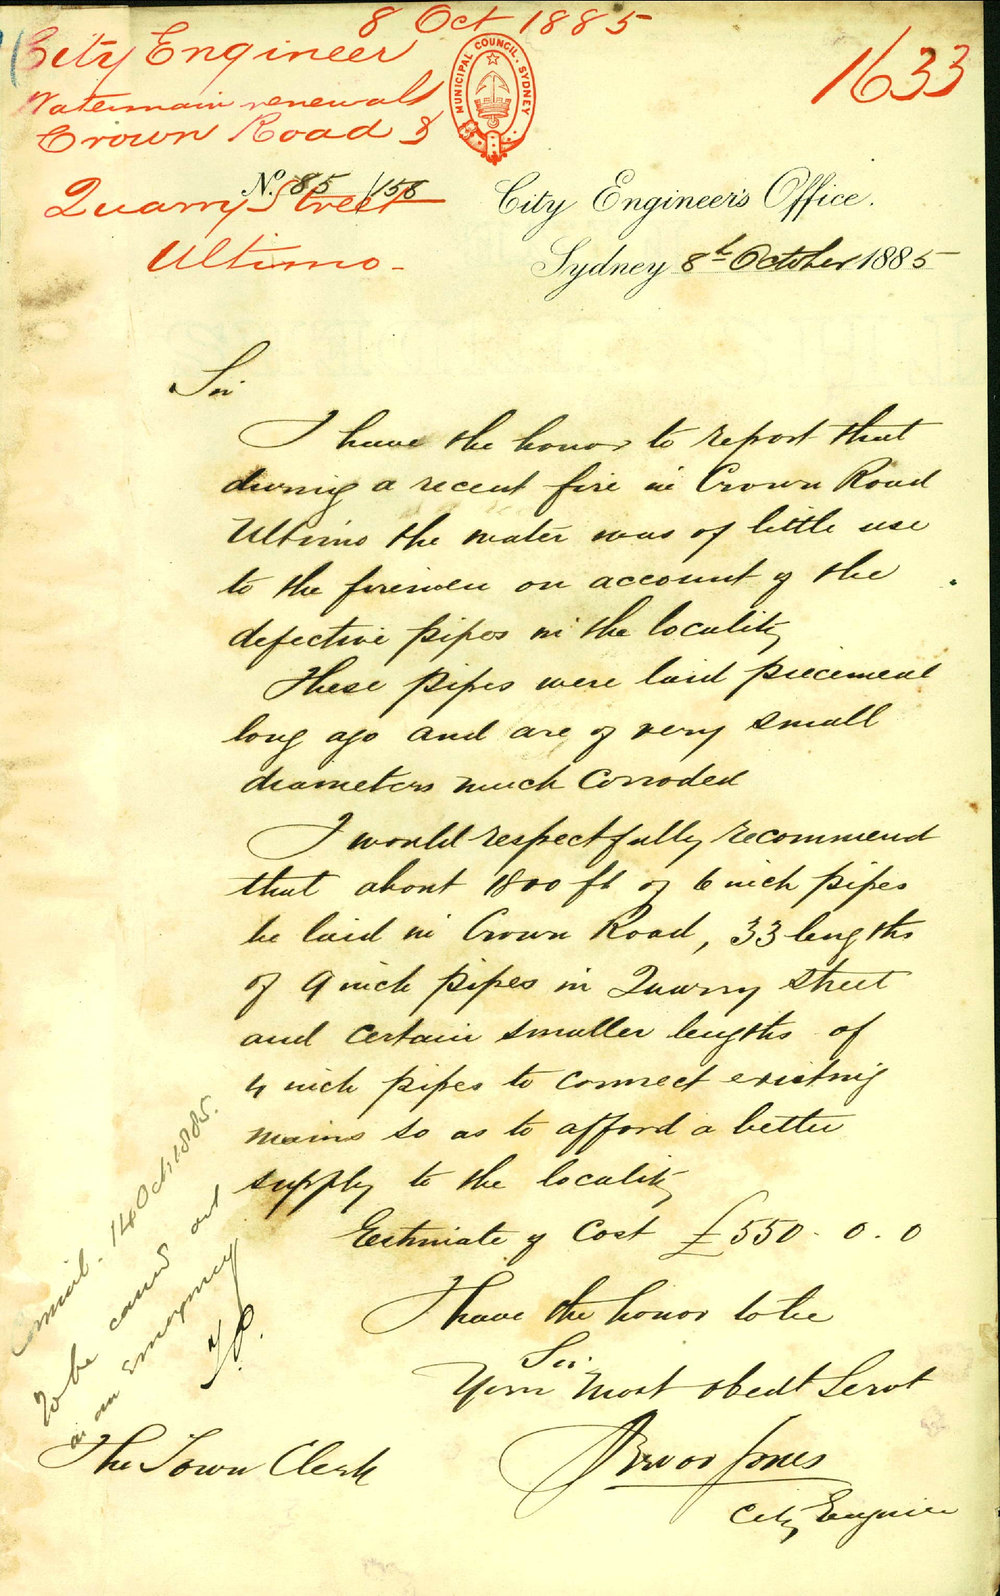 8 Oct 1885
City Engineer
Watermain renewals
Crown Road &
Quarry Street
Ultimo -
1633
MUNICIPAL COUNCIL. SYDNEY
No. 85/158
City Engineer's Office.
Sydney 8th October 1885
Sir
I have the honor to report that
during a recent fire in Crown Road
Ultimo the water was of little use
to the firemen on account of the
defective pipes in the locality
These pipes were laid piecemeal
long ago and are of very small
diameters much corroded
I would respectfully recommend
that about 1800 ft of 6 inch pipes
be laid in Crown Road, 33 lengths
of 9 inch pipes in Quarry Street
and certain smaller lengths of
4 inch pipes to connect existing
mains so as to afford a better
supply to the locality
Estimate of Cost £550. 0. 0
I have the honor to be
Sir.
Your Most obedt Servt
Trevor Jones
City Engineer
The Town Clerk
14 Oct 1885.
To be carried out
as an emergency